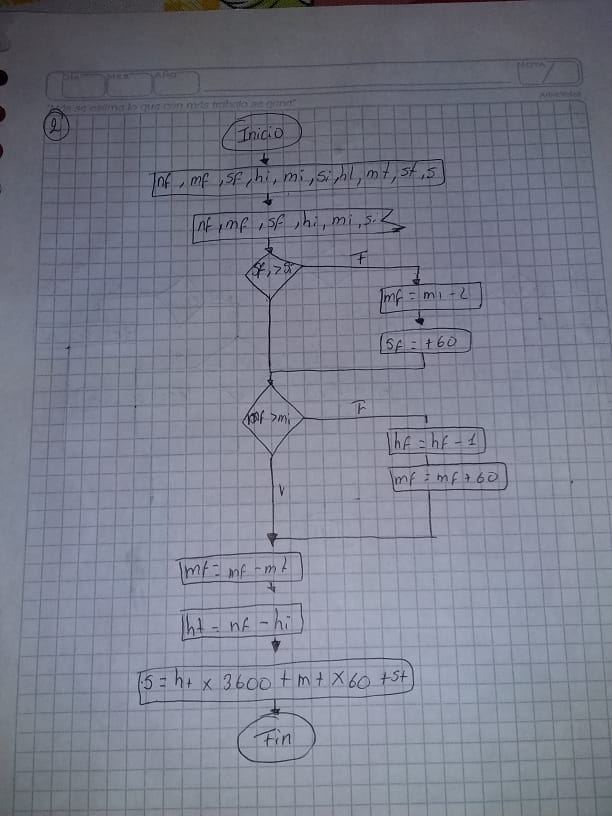 DIA MES AÑO NOTA
se estima lo que con más trabajo se gana"
2
Inicio
hf, mf, sf, hi, mi, si, ht, mt, st, s
hf, mf, sf, hi, mi, s.
sf, > si F
mf = mi - 2
sf = +60
mf > mi F
hf = hf - 1
mf = mf + 60
V
mt = mf - mt
ht = nf - hi
s = ht x 3600 + mt x 60 + st
Fin